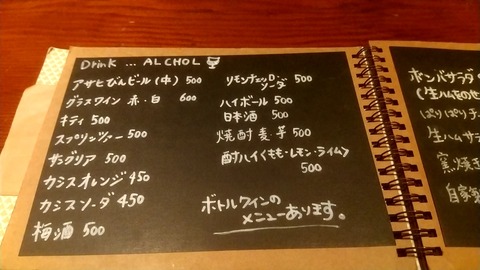 Drink ... ALCHOL
アサヒびんビール(中) 500
グラスワイン 赤・白 600
キティ 500
スプリッツァー 500
サングリア 500
カシスオレンジ 450
カシスソーダ 450
梅酒 500
リモンチェッロソーダ 500
ハイボール 500
日本酒 500
焼酎 麦 芋 500
酎ハイ<もも・レモン・ライム>
500
ボトルワインの
メニューあります。
ボンバサラダ
(生ハムのせ
ぱりぱりチ
生ハムサラ
窯焼き
自家製